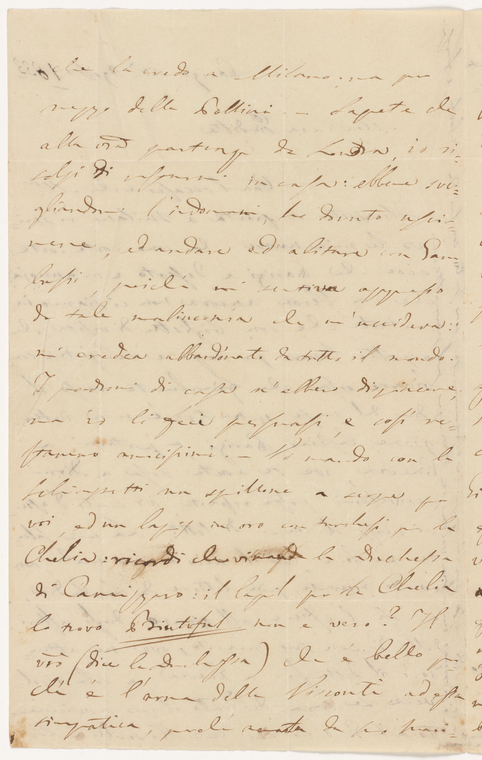 la credo a Milano; ma per
mezzo della Pollini. — Sapete che
alla vra partenza da Londra, io ri-
solsi di in casa: ebbene sve-
gliandomi l'indomani, ho dovuto usci-
mene, ed andare ad abitare con Gam-
bussi, poiché mi sentiva oppresso
da tale malinconia che m'uccideva:
mi credea abbandonato da tutto il mondo.
I padroni di casa n'ebbero dispiacere,
ma io li feci persuasi, e così re-
stammo amicissimi. — Vi mando con la
uno spillone a per
voi, ed un lapis in oro con turchesi per la
Clelia: ricordi che vi manda la Duchessa
di Cannizzaro: il lapis per la Clelia
lo trovo Beautiful non è vero? Il
vro (dice la Duchessa) che è bello per-
ché è l'arma della Visconti ad essa
simpatica, perché nata da